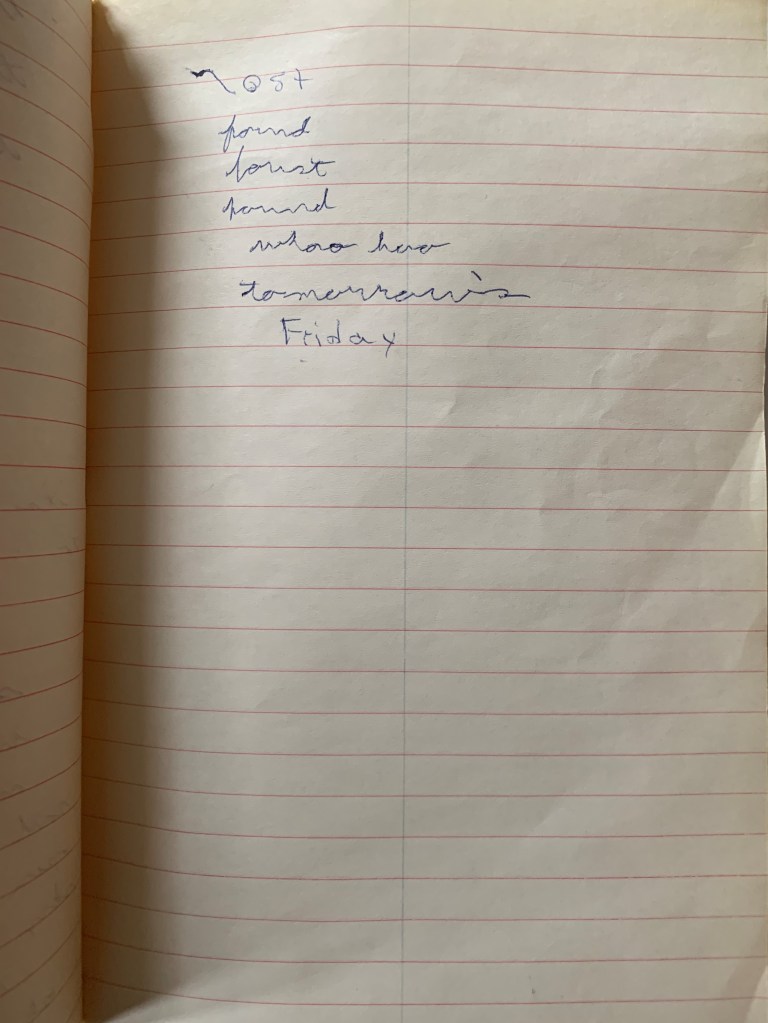 Lost
found
foust
found
whoo hoo
tomorrow's
Friday